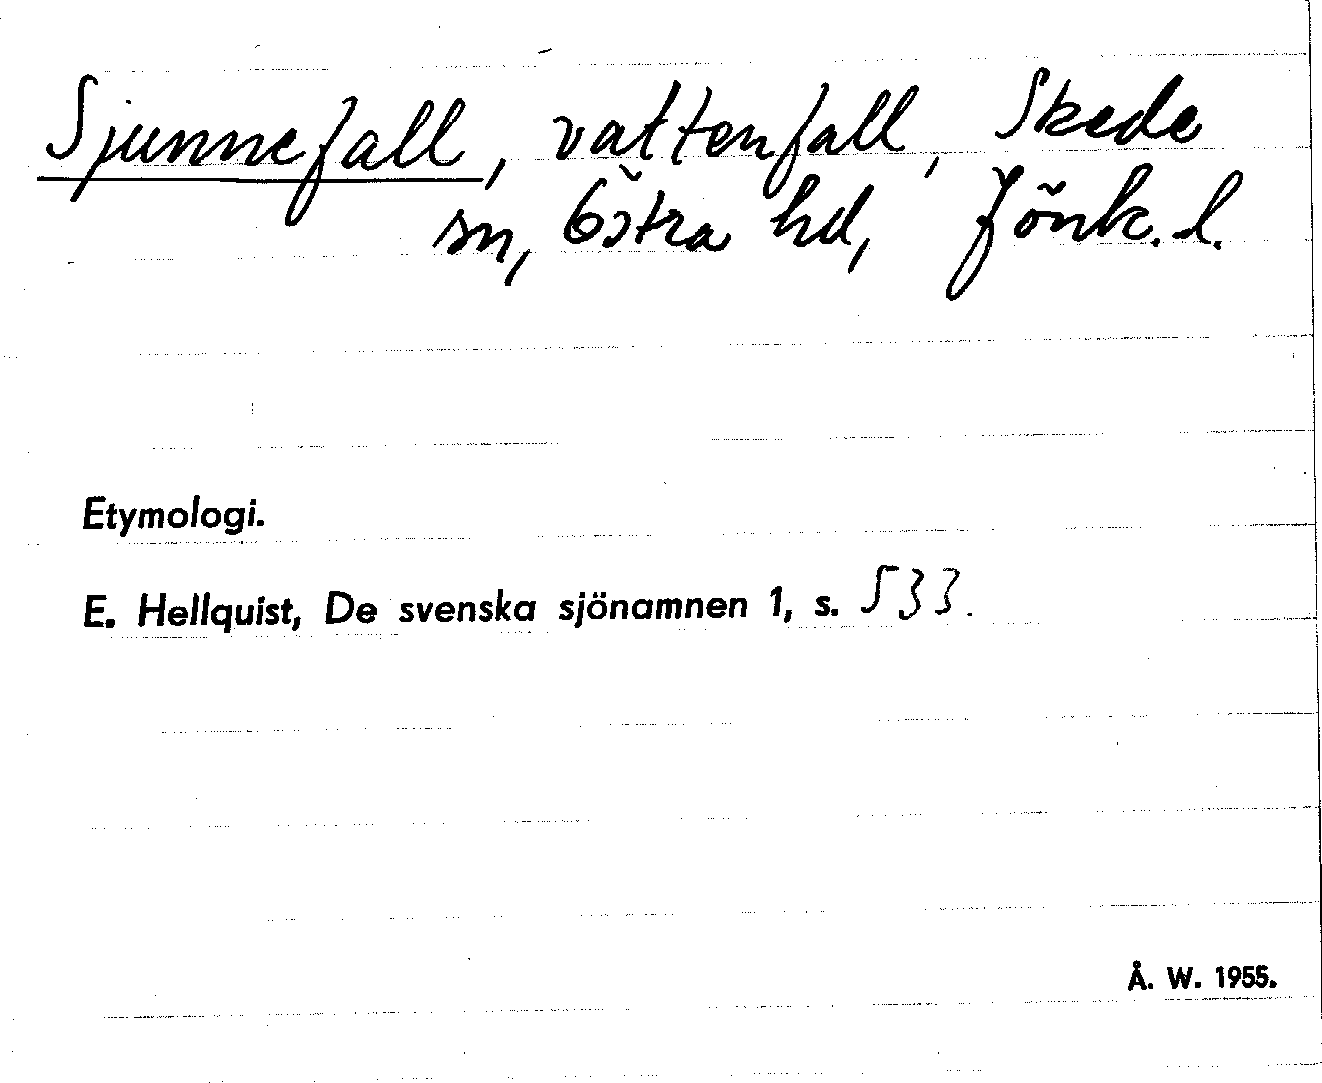 Sjunnefall, vattenfall, Skede
sn, Östra hd, Jönk. l.
Etymologi.
E. Hellquist, De svenska sjönamnen 1, s. 533.
Å. W. 1955.